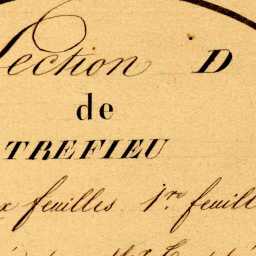 Section D
de
TREFIEU
x feuilles 1re feuill